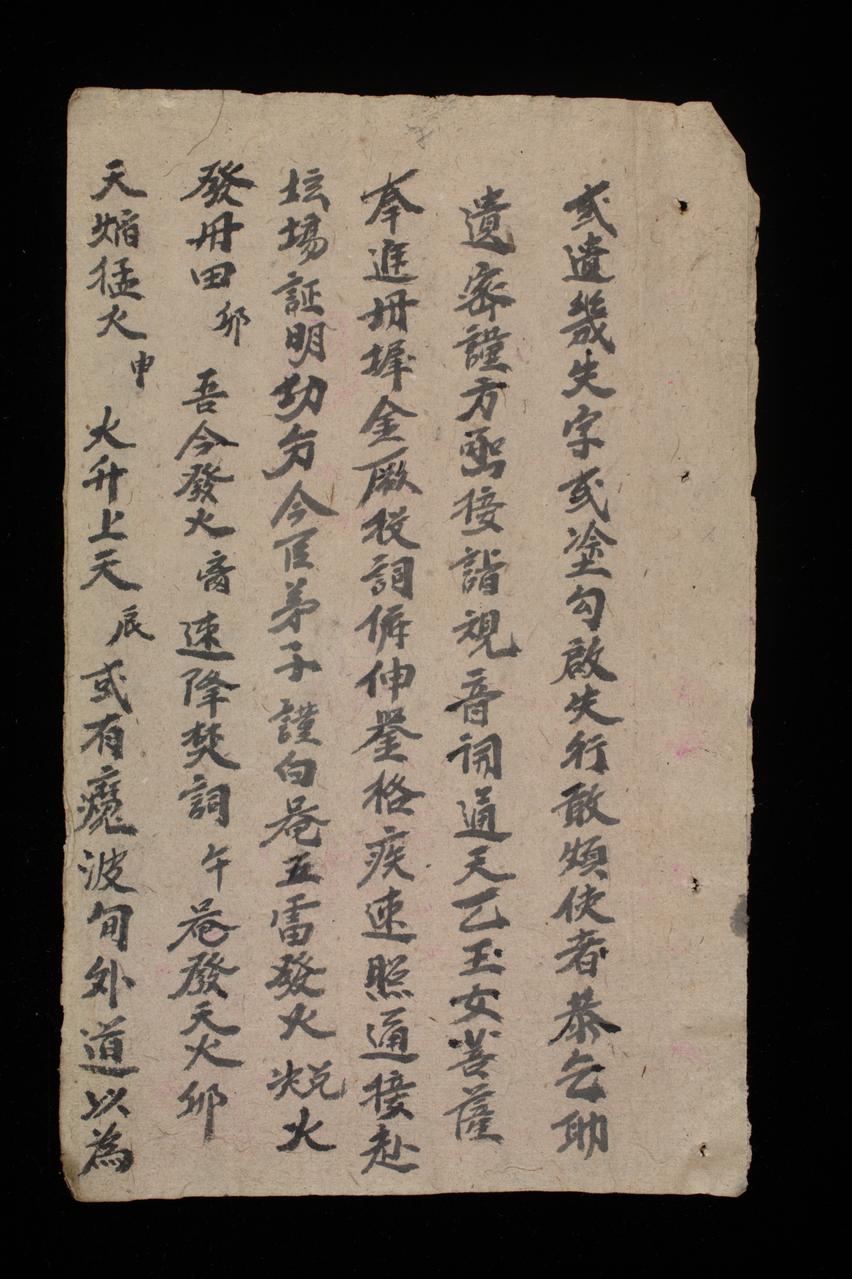 或遺幾失字或塗勾啟失行敢煩使者恭乞助
遺密謹方聖接詣視音詞通天乙玉女菩薩
奉進丹墀金厥投詞俯伸鑒格疾速照通接赴
坛場証明功旁今臣弟子謹向菴五雷發火炾火
發丹田卯吾今發火商速降焚詞午菴發天火卯
天焰猛火申火升上天辰或有魔波旬外道以為